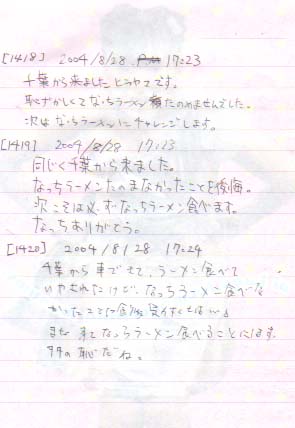 [1418] 2004/8/28 P.M 17:23
千葉から来ましたとみやです。
恥ずかしくてなっちラーメン頼たのめませんでした。
次はなっちラーメンにチャレンジします。
[1419] 2004/8/28 17:23
同じく千葉から来ました。
なっちラーメンたのまなかったことを後悔。
次こそは必ずなっちラーメン食べます。
なっちありがとう。
[1420] 2004/8/28 17:24
千葉から車できて、ラーメン食べて
いやされたけど、なっちラーメン食べな
かったことに
また来てなっちラーメン食べることにします。
の恥だね。